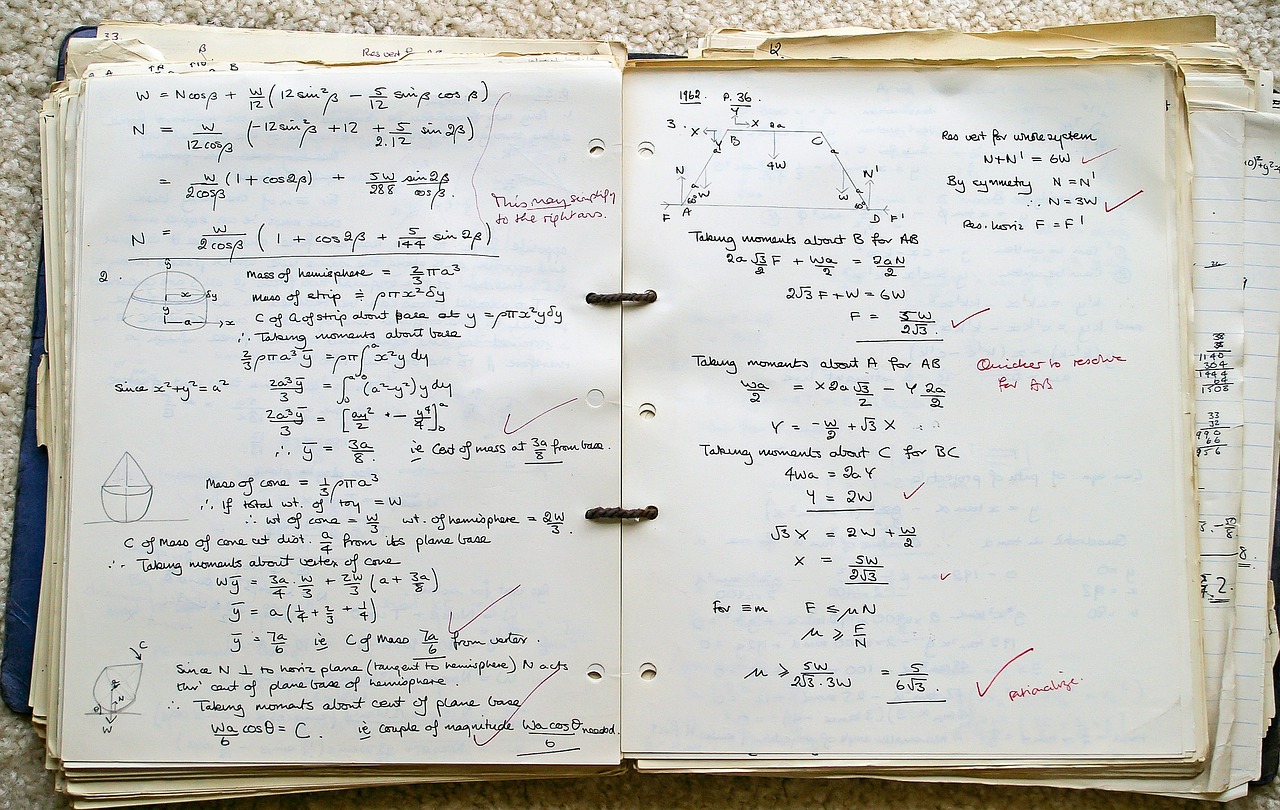 33.
β
Res vert
A B
W = N cos β + W/12 (12 sin²β − 5/12 sin β cos β)
N = W/12cosβ (−12 sin²β + 12 + 5/2.12 sin 2β)
= W/2cosβ (1 + cos 2β) + 5W/288 sin 2β/cos β.
This may simplify
to the right ans.
N = W/2cosβ (1 + cos 2β + 5/144 sin 2β)
2.
y
x δy
y
a x
Mass of hemisphere = 2/3 πa³
Mass of strip ≑ ρπx²δy
C of G of strip about base at y = ρπx²yδy
∴ Taking moments about base
2/3 ρπa³ȳ = ρπ∫₀ᵃ x²y dy
Since x²+y² = a² 2a³ȳ/3 = ∫₀ᵃ (a²−y²) y dy
2a³ȳ/3 = [ay²/2 − y⁴/4]₀ᵃ
∴ ȳ = 3a/8 ie Cent of mass at 3a/8 from base.
Mass of cone = 1/3 ρπa³
∴ If total wt. of toy = W
∴ wt of cone = W/3 wt. of hemisphere = 2W/3.
C of Mass of cone at dist. a/4 from its plane base
∴ Taking moments about vertex of cone
Wȳ = 3a/4 · W/3 + 2W/3 (a + 3a/8)
ȳ = a(1/4 + 2/3 + 1/4)
ȳ = 7a/6 ie C of Mass 7a/6 from vertex.
C
N
θ
W
Since N ⊥ to horiz plane (tangent to hemisphere) N acts
thro' cent of plane base of hemisphere.
∴ Taking moments about cent of plane base
Wa/6 cos θ = C. ie couple of magnitude Wa cos θ/6 needed.
62.
1962. P. 36.
3.
Y
X X 2a
B C
Y a a
4W
N N'
a a
W W
60° 60°
F A D F'
Res vert for whole system
N+N' = 6W
By symmetry N = N'
∴ N = 3W
Res. horiz F = F'
Taking moments about B for AB
2a √3/2 F + Wa/2 = 2aN/2
2√3 F + W = 6W
F = 5W/2√3.
Taking moments about A for AB
Quicker to resolve
for AB
Wa/2 = X 2a √3/2 − Y 2a/2
Y = −W/2 + √3 X
Taking moments about C for BC
4Wa = 2aY
Y = 2W
√3 X = 2W + W/2
X = 5W/2√3
For ≡m F ≤ μN
μ ≥ F/N
μ ≥ 5W/2√3.3W = 5/6√3.
rationalize.
38
38
1140
304
1444
64
1508
33
32
990
66
956
8.
2.